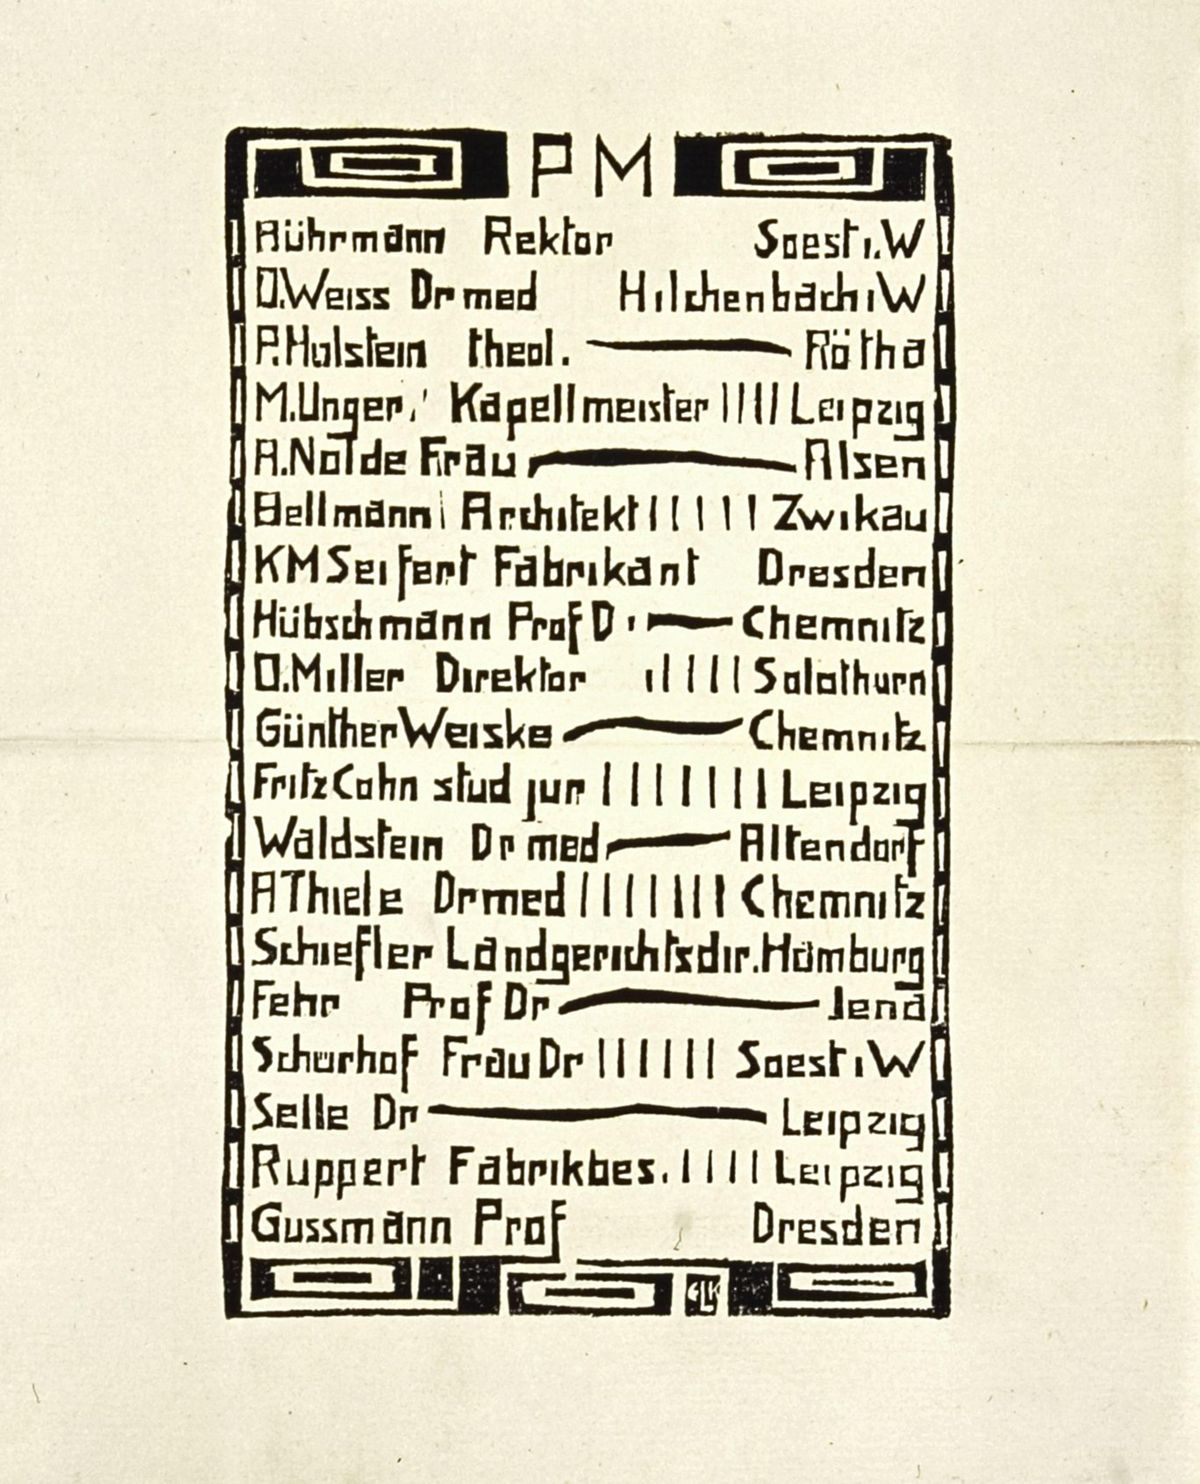 PM
Rührmann Rektor Soest i. W
O. Weiss Dr med Hilchenbach i W
P. Holstein theol. Rötha
M. Unger, Kapellmeister Leipzig
A. Nolde Frau Alsen
Bellmann Architekt Zwikau
KM Seifert Fabrikant Dresden
Hübschmann Prof D Chemnitz
O. Miller Direktor Solothurn
Günther Weiske Chemnitz
Fritz Cohn stud jur Leipzig
Waldstein Dr med Altendorf
A Thiele Dr med Chemnitz
Schiefler Landgerichtsdir. Hamburg
Fehr Prof Dr Jena
Schürhof Frau Dr Soest i W
Selle Dr Leipzig
Ruppert Fabrikbes. Leipzig
Gussmann Prof Dresden
ELK